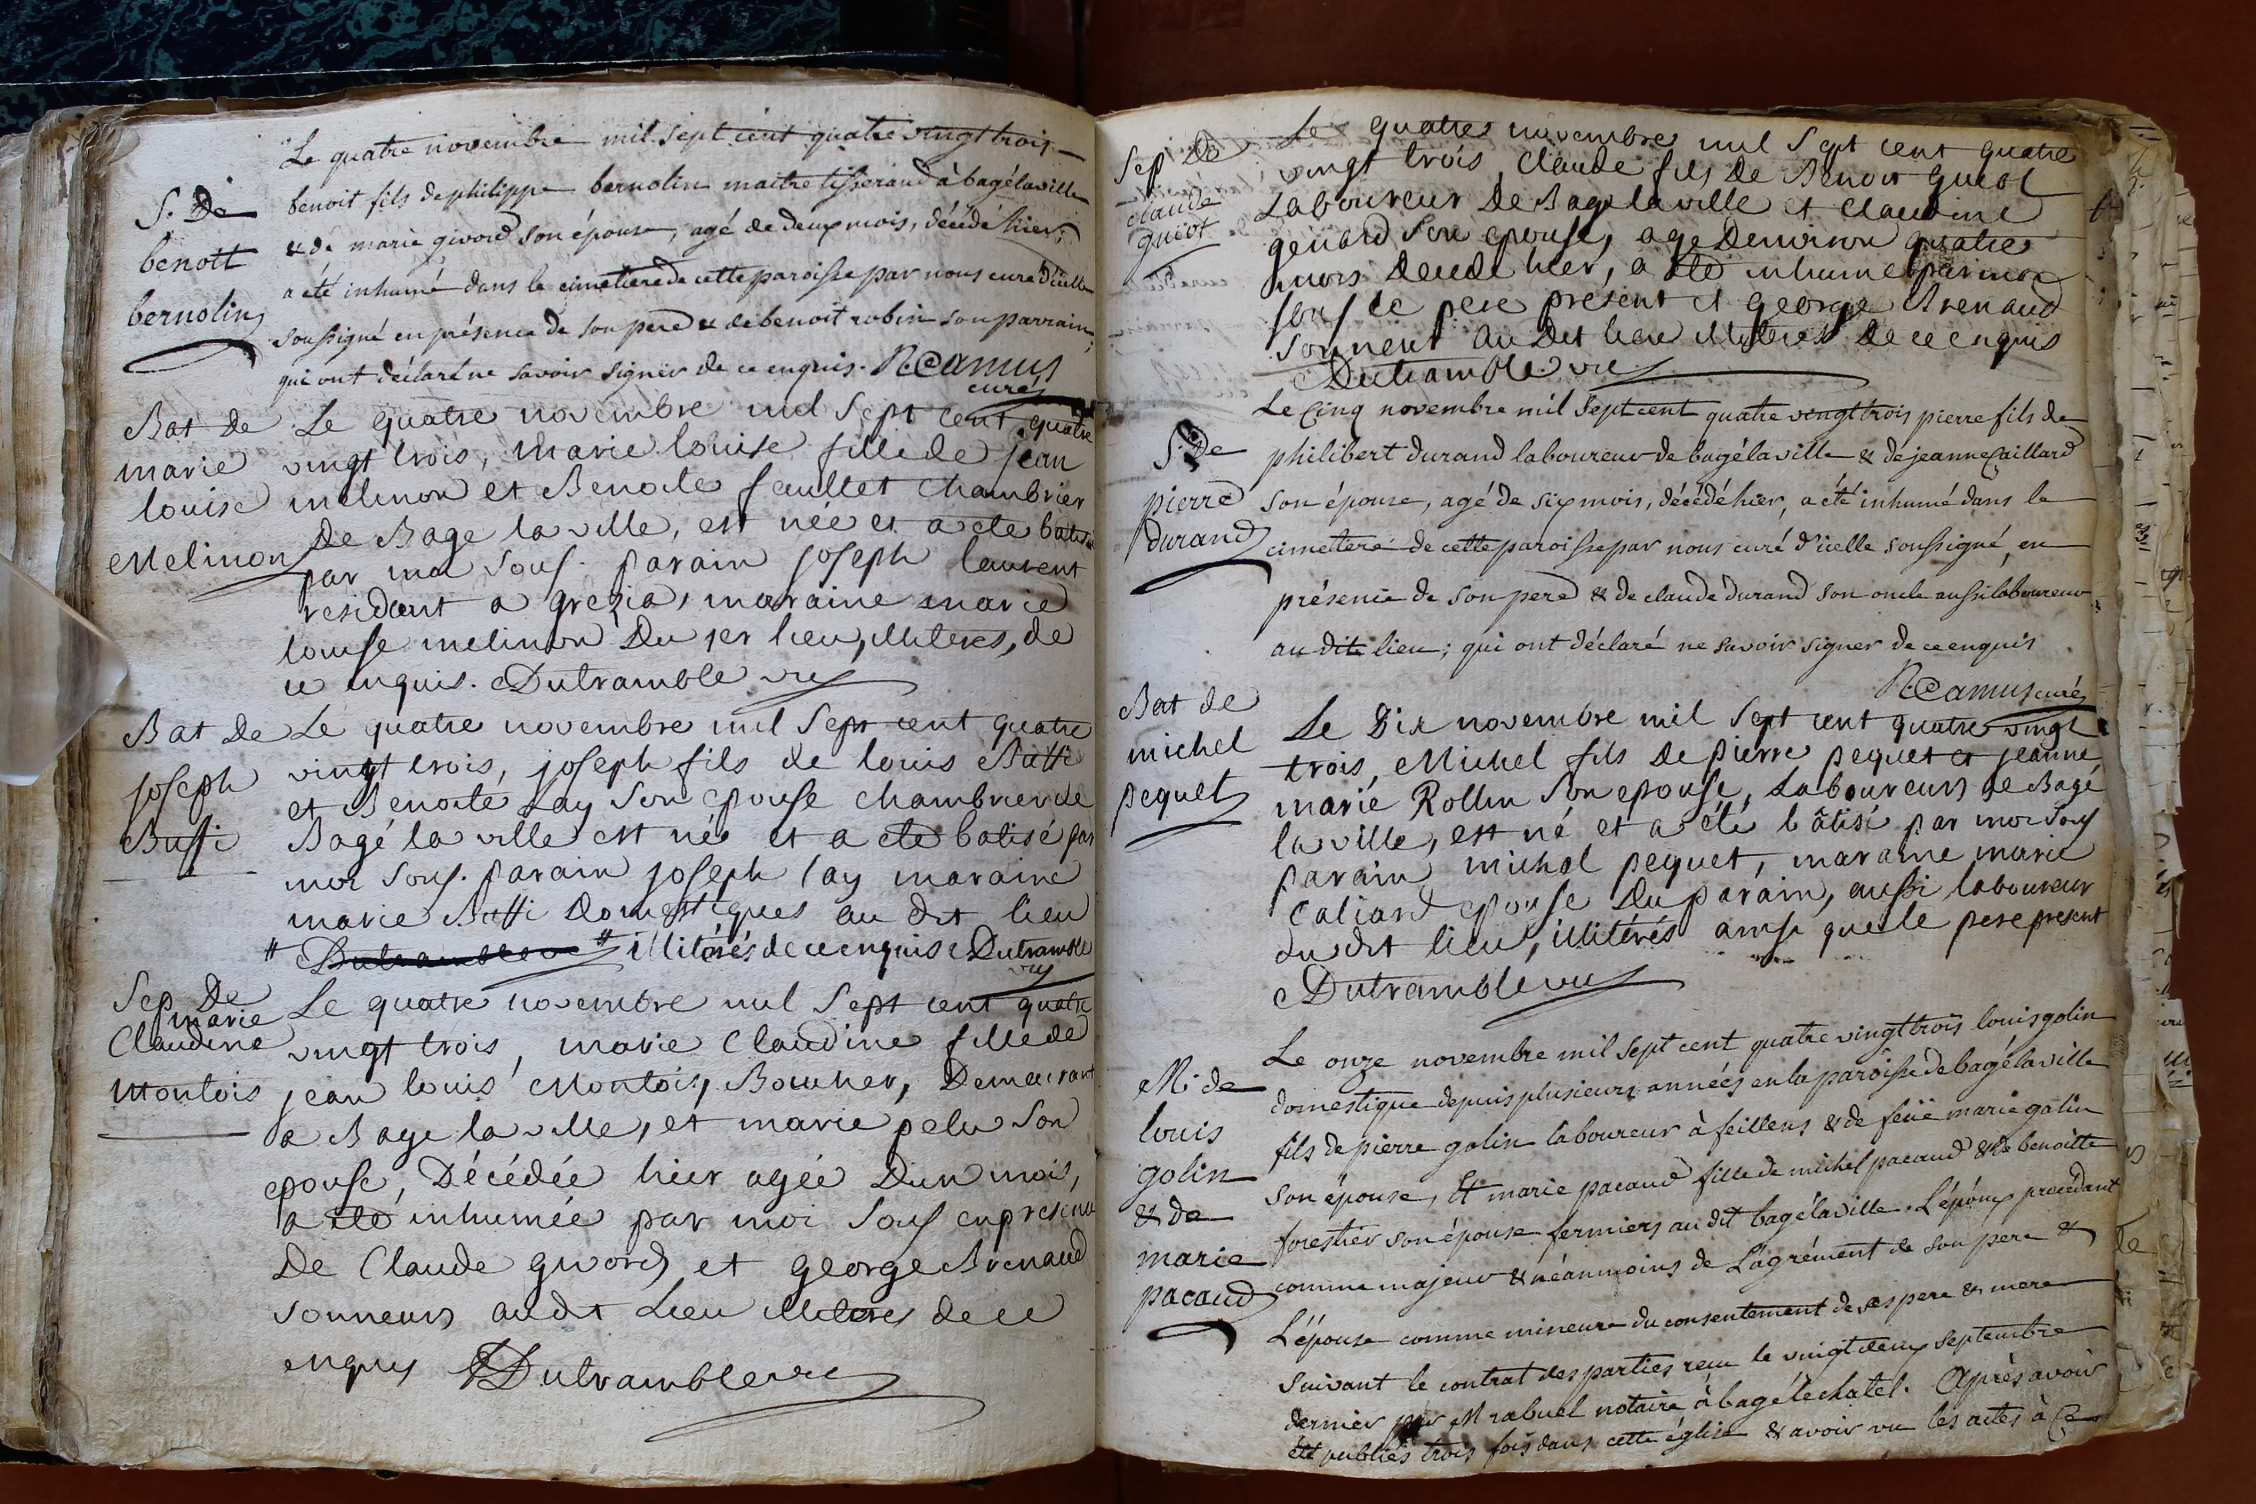 Le quatre novembre mil sept cent quatre vingt trois
S. De benoit bernolin
benoit fils de philippe bernolin maitre tisserand à bagélaville
& de marie givord son épouse, agé de deux mois, décédé hier,
a été inhumé dans le cimetiere de cette paroisse par nous curé d'icelle
soussigné en présence de son pere & de benoit robin son parrain,
qui ont déclaré ne savoir signer de ce enquis. R. Camus
curé
Bat de marie louise Melinon
Le quatre novembre mil sept cent quatre
vingt trois, marie louise fille de jean
melinon et Benoite feuillet chambrier
De Bage la ville, est née et a ete batisée
par moi sous. parain joseph laurent
residant a grezia, maraine marie
louise melinon Du 1er lieu, illiteres, de
ce enquis. Dutramble vic
Bat De joseph Buffi
Le quatre novembre mil sept cent quatre
vingt trois, joseph fils de louis Buffi
et Benoite Lay son epouse chambrier de
Bagé la ville est né et a ete batisé par
moi sous. parain joseph lay maraine
marie Buffi Domestiques au dit lieu
# Dutramble vic # illitérés de ce enquis Dutramble
vic
Sep De marie Claudine Montois
Le quatre novembre mil sept cent quatre
vingt trois, marie Claudine fille de
jean louis Montois, Boucher, Demeurant
a Bage la ville, et marie pelu son
epouse, Décédée hier agée Dun mois,
a eté inhumée par moi sous en presence
De Claude givord et george Brenaud
sonneurs audit Lieu illiteres de ce
enquis Dutramble vic
Sep De claude guiot
Le quatre novembre mil sept cent quatre
vingt trois, Claude fils De Benoit guiot
Laboureur De Bage la ville et Claudine
genard son epouse, age Denviron quatre
mois Decedé hier, a eté inhumé par moi
sous le pere présent et george Brenaud
sonneur au Dit lieu illiteres De ce enquis
Dutramble vic
S. De pierre durand
Le cinq novembre mil sept cent quatre vingt trois pierre fils de
philibert durand laboureur de bagélaville & de jeanne Caillard
son épouse, agé de six mois, décédé hier, a été inhumé dans le
cimetiere de cette paroisse par nous curé d'icelle soussigné, en
présence de son pere & de claude durand son oncle aussi laboureur
au dit lieu; qui ont déclaré ne savoir signer de ce enquis
R. Camus curé
Bat de michel pequet
Le Dix novembre mil sept cent quatre vingt
trois, Michel fils De pierre pequet et jeanne
marie Rollin son epouse, Laboureurs de Bagé
la ville, est né et a été bâtisé par moi sous
parain michel pequet, maraine marie
Caliard epouse Du parain, aussi laboureur
du dit lieu, illitérés ainsi que le pere present
Dutramble vic
M. de louis golin & de marie pacaud
Le onze novembre mil sept cent quatre vingt trois louis golin
domestique depuis plusieurs années en la paroisse de bagélaville
fils de pierre golin laboureur à feillens & de feüe marie golin
son épouse, Et marie pacaud fille de michel pacaud & de benoitte
forestier son épouse fermiers au dit bagélaville. L'époux procédant
comme majeur & néanmoins de L'agrément de son pere &
L'épouse comme mineure du consentement de ses pere & mere
suivant le contrat des parties recu le vingt deux septembre
dernier par M rabuel notaire à bagé le chatel. Après avoir
été publiés trois fois dans cette église & avoir vu les actes à ce